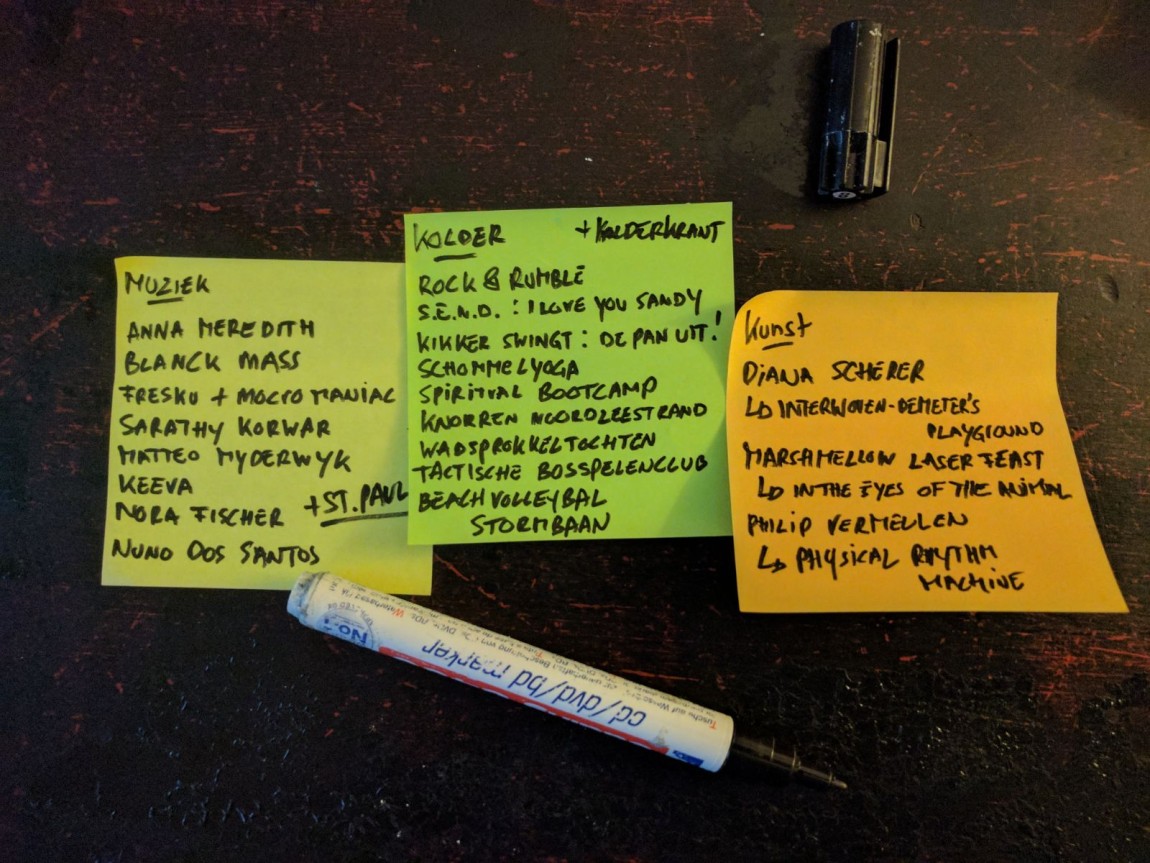 MUZIEK
ANNA MEREDITH
BLANCK MASS
FRESKU + MOCROMANIAC
SARATHY KORWAR
MATTEO MYDERWYK
KEEVA
NORA FISCHER +ST.PAUL
NUNO DOS SANTOS
KOLDER +KOLDERKRANT
ROCK & RUMBLE
S.E.N.D. : I LOVE YOU SANDY
KIKKER SWINGT : DE PAN UIT!
SCHOMMELYOGA
SPIRITUAL BOOTCAMP
KNORREN NOORDZEESTRAND
WADSPROKKELTOCHTEN
TACTISCHE BOSSPELENCLUB
BEACHVOLLEYBAL
STORMBAAN
Kunst
DIANA SCHERER
↳ INTERWOVEN-DEMETER'S
PLAYGROUND
MARSHMELLOW LASER FEAST
↳ IN THE EYES OF THE ANIMAL
PHILIP VERMEULEN
↳ PHYSICAL RHYTHM
MACHINE
cd/dvd/bd marker